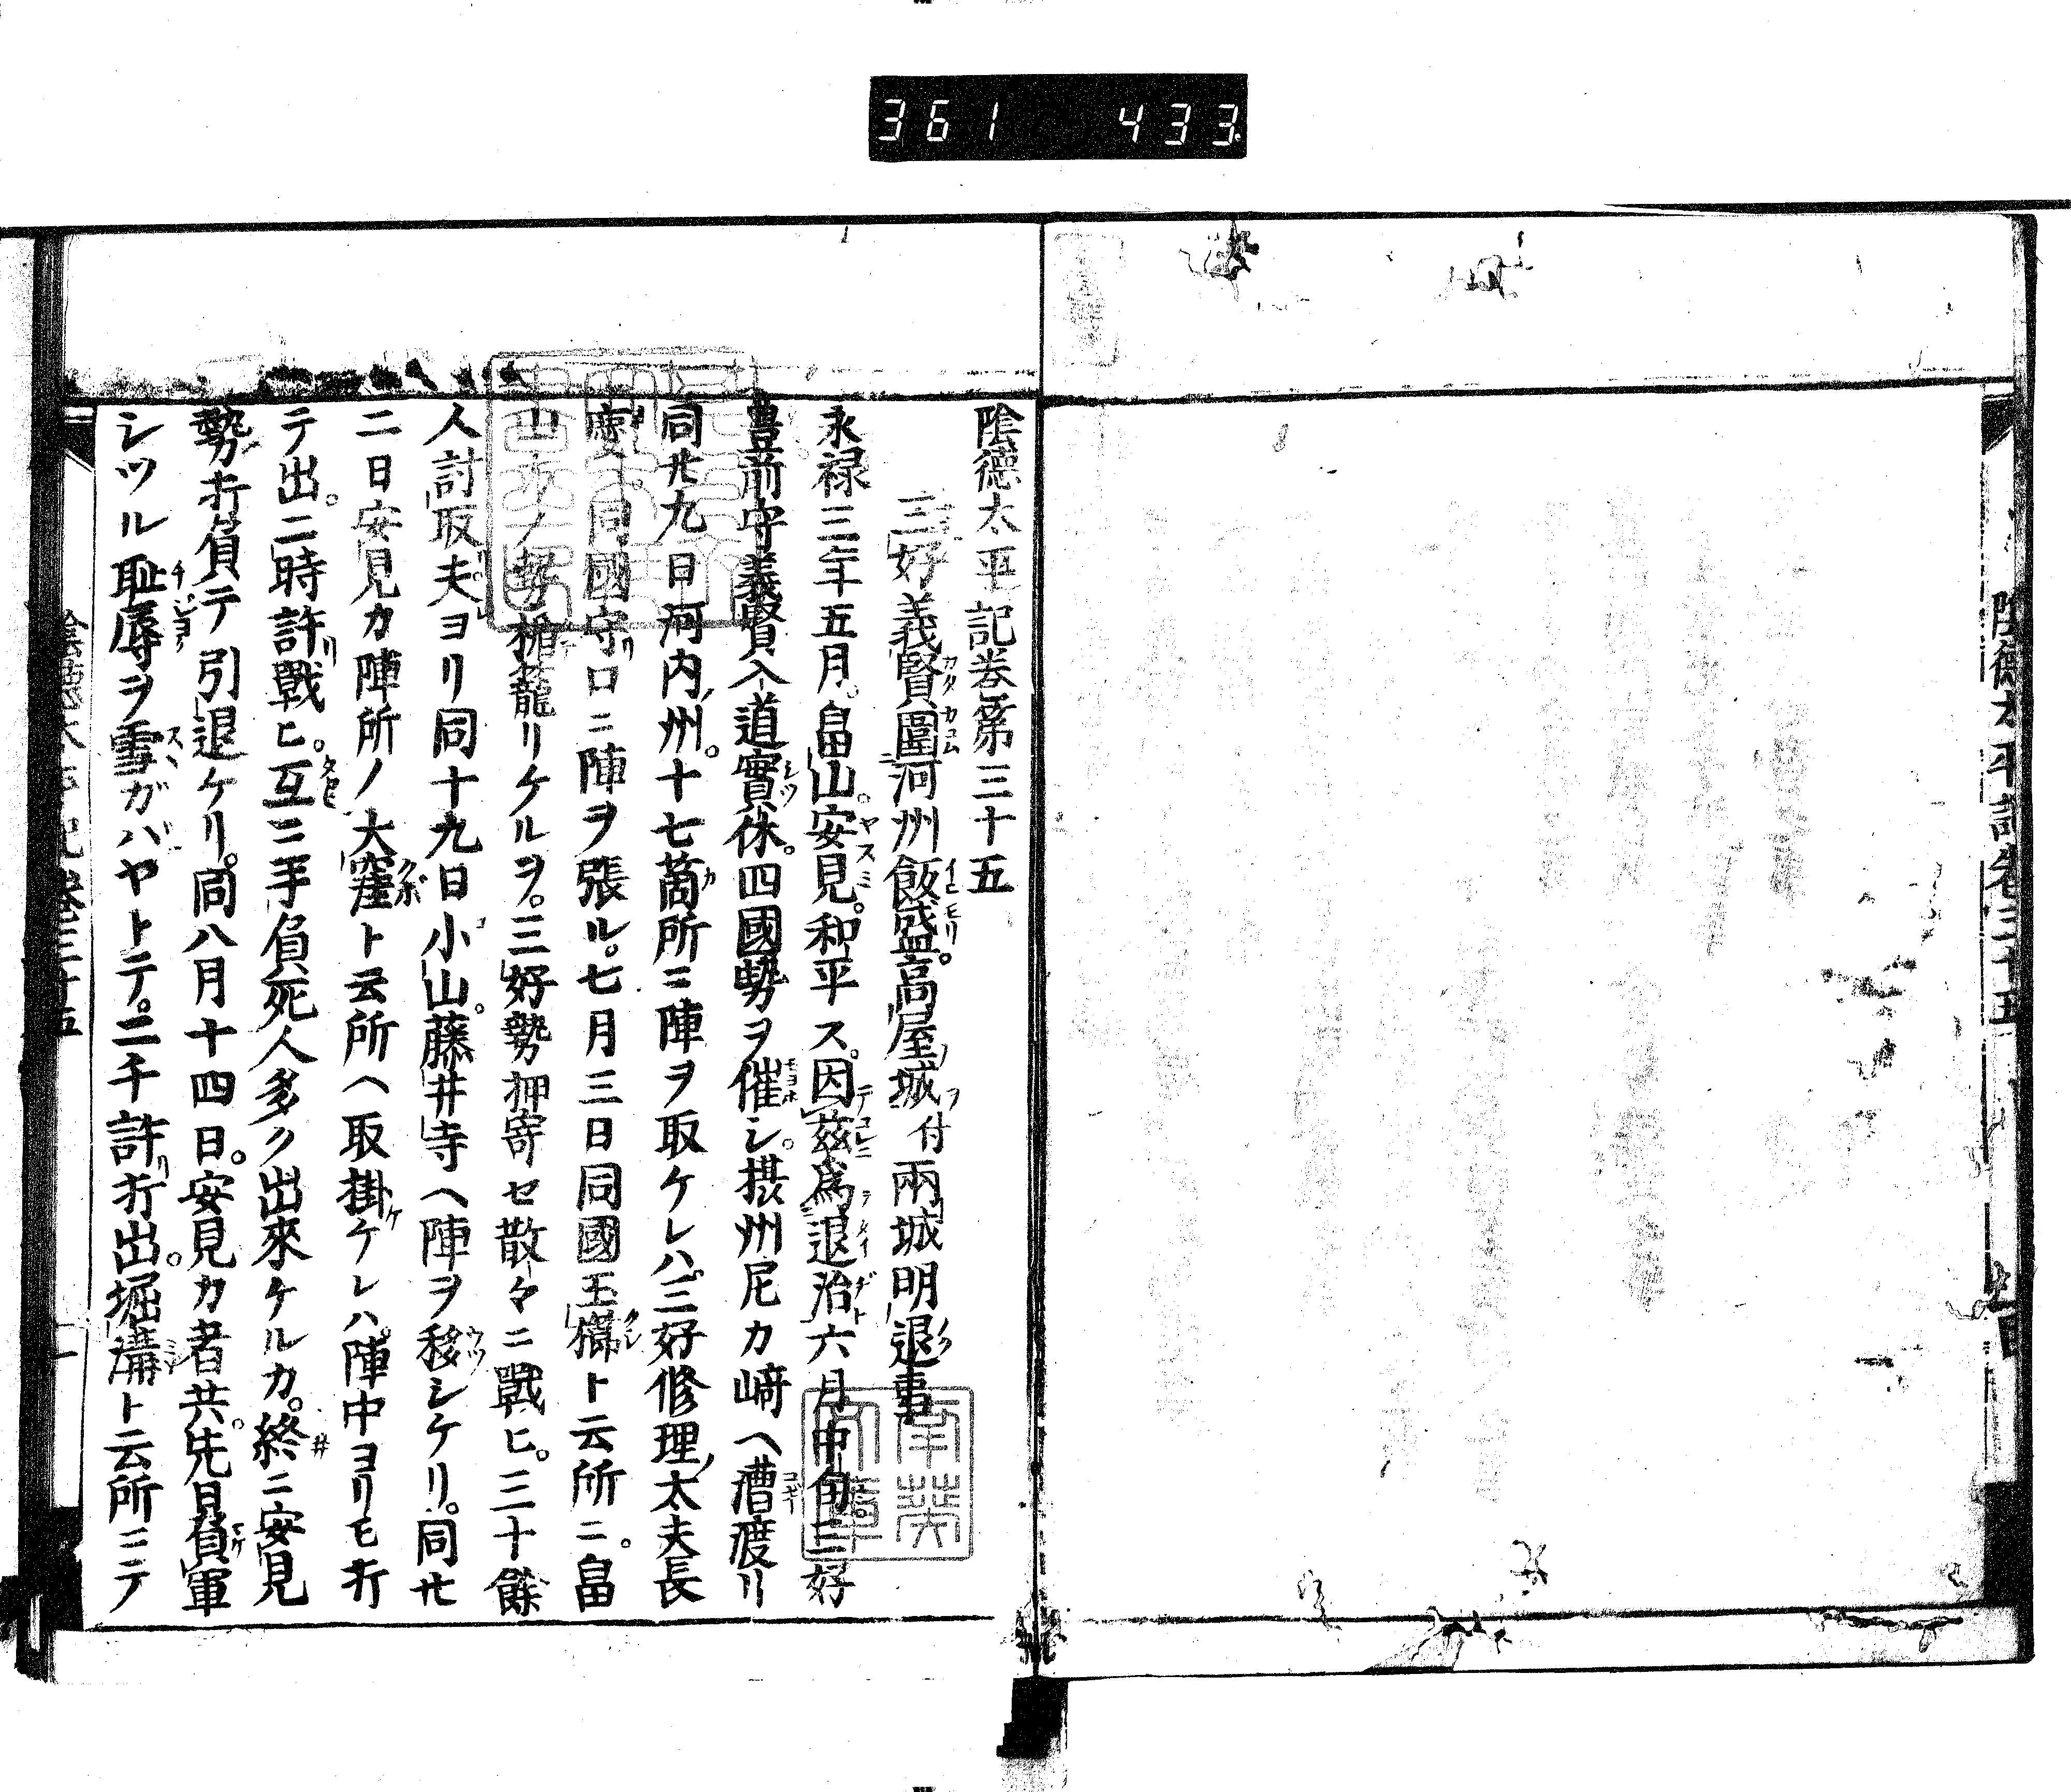 361 433
陰德太平記卷三十五
陰德太平記卷第三十五
三好義賢圍河州飯盛。高屋城付兩城明退事
永禄三年五月。畠山。安見。和平ス。因茲爲退治六月中旬三好
豊前守義賢入道實休。四國勢ヲ催シ。摂州尼カ﨑ヘ漕渡リ
同廿九日河内ノ州。十七箇所ニ陣ヲ取ケレハ。三好修理ノ太夫長
慶ハ。同國守リ口ニ陣ヲ張ル。七月三日同國玉櫛ト云所ニ。畠
山カノ勢楯籠リケルヲ。三好勢押寄セ散々ニ戰ヒ。三十餘
人討取夫ヨリ同十九日小山。藤井寺ヘ陣ヲ移シケリ。同廿
二日安見カ陣所ノ大窪ト云所ヘ取掛ケレハ。陣中ヨリモ打
テ出。二時許戰ヒ。互ニ手負死人多ク出來ケルカ。終ニ安見
勢打負テ引退ケリ。同八月十四日。安見カ者共。先日負軍
シツル恥辱ヲ雪ガバヤトテ。二千許打出。堀溝ト云所ニテ